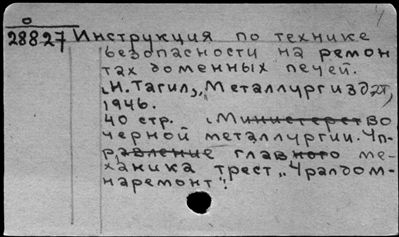 28827 Инструкция по технике
безопасности на ремон
тах доменных печей.
Н. Тагил, "Металлургиздат",
1946.
40 стр. Министерство
черной металлургии. Уп-
равление главного ме-
ханика трест „Уралдом-
наремонт".